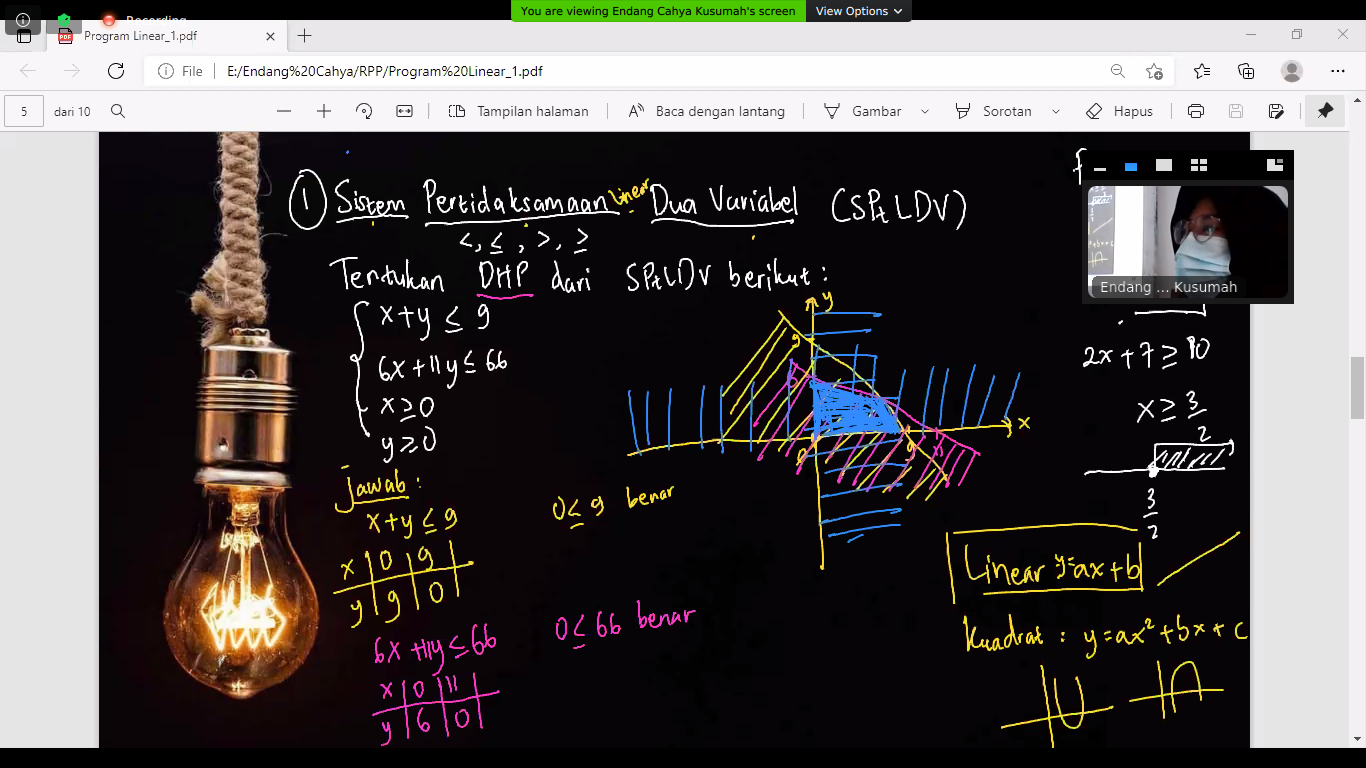 You are viewing Endang Cahya Kusumah's screen
View Options
Recording
Program Linear_1.pdf
File
E:/Endang%20Cahya/RPP/Program%20Linear_1.pdf
5
dari 10
Tampilan halaman
Baca dengan lantang
Gambar
Sorotan
Hapus
① Sistem Pertidaksamaan linear Dua Variabel (SPtLDV)
<, ≤, >, ≥
Tentukan DHP dari SPtLDV berikut:
x+y ≤ 9
6x+11y ≤ 66
x ≥ 0
y ≥ 0
jawab:
x+y ≤ 9
0 ≤ 9 benar
x | 0 | 9
y | 9 | 0
6x+11y ≤ 66
0 ≤ 66 benar
x | 0 | 11
y | 6 | 0
y
9
6
x
0
9
11
Endang ... Kusumah
2x+7 ≥ 10
x ≥ 3/2
3/2
Linear y=ax+b
Kuadrat: y=ax²+bx+c